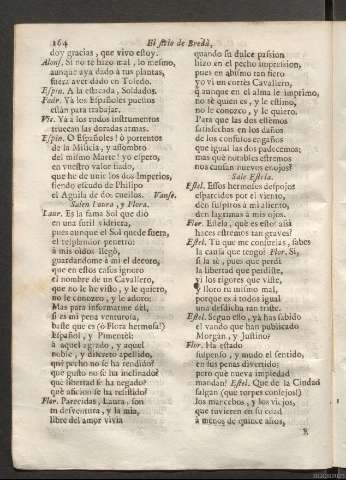 164 El sitio de Bredà,
doy gracias, que vivo estoy.
Alons. Si no te hizo mal, lo mesmo,
aunque aya dado à tus plantas,
fuera aver dado en Toledo.
Espin. A la estacada, Soldados.
Fadr. Yà los Españoles puestos
están para trabajar.
Vic. Yà à los rudos instrumentos
truecan las doradas armas.
Espin. O Españoles! ò portentos
de la Milicia, y assombro
del mismo Marte! yo espero,
en vuestro valor fiado,
que he de unir los dos Imperios,
siendo escudo de Philipo
el Aguila de dos cuellos. Vanse.
Salen Laura, y Flora.
Laur. Es la fama Sol que diò
en una sutil vidriera,
pues aunque el Sol quede fuera,
el resplandor penetrò:
à mis oìdos llegò,
guardandome à mi el decoro,
que en estos casos ignoro
el nombre de un Cavallero,
que no le he visto, y le quiero,
no le conozco, y le adoro:
Mas para informarme dèl,
si es mi pena venturosa,
baste que es (ò Flora hermosa!)
Español, y Pimentèl:
à aquel agrado, y aquel
noble, y discreto apellido,
què pecho no se ha rendido?
què gusto no se ha inclinado?
què libertad se ha negado?
què aficion se ha resistido?
Flor. Parecidas, Laura, son
tu desventura, y la mia,
libre del amor vivia
quando su dulce passion
hizo en el pecho impression,
pues en abismo tan fiero
yo vi un cortès Cavallero,
que aunque en el alma le imprimo,
no sè quien es, y le estimo,
no le conozco, y le quiero.
Para que las dos estèmos
satisfechas en los daños
de los confusos engaños
que igual las dos padecemos;
mas què notables estremos
nos causan nuevos enojos?
Sale Estela.
Estel. Essos hermosos despojos
esparcidos por el viento,
den suspiros à mi aliento,
den lagrimas à mis ojos.
Flor. Estela, què es esto? assi
haces estremos tan graves?
Estel. Tù que me consuelas, sabes
la causa que tengo? Flor. Si,
si la sè, pues que perdì
la libertad que perdiste,
y los rigores que viste,
y lloro tu mismo mal,
porque es à todos igual
una desdicha tan triste.
Estel. Segun esso, yà has sabido
el vando que han publicado
Morgàn, y Justino?
Flor. Ha estado
suspenso, y mudo el sentido,
en sus penas divertido;
pero què nueva impiedad
mandan? Estel. Que de la Ciudad
salgan (què torpes consejos!)
los mancebos, y los viejos,
que tuvieren en su edad
à menos de quince años,